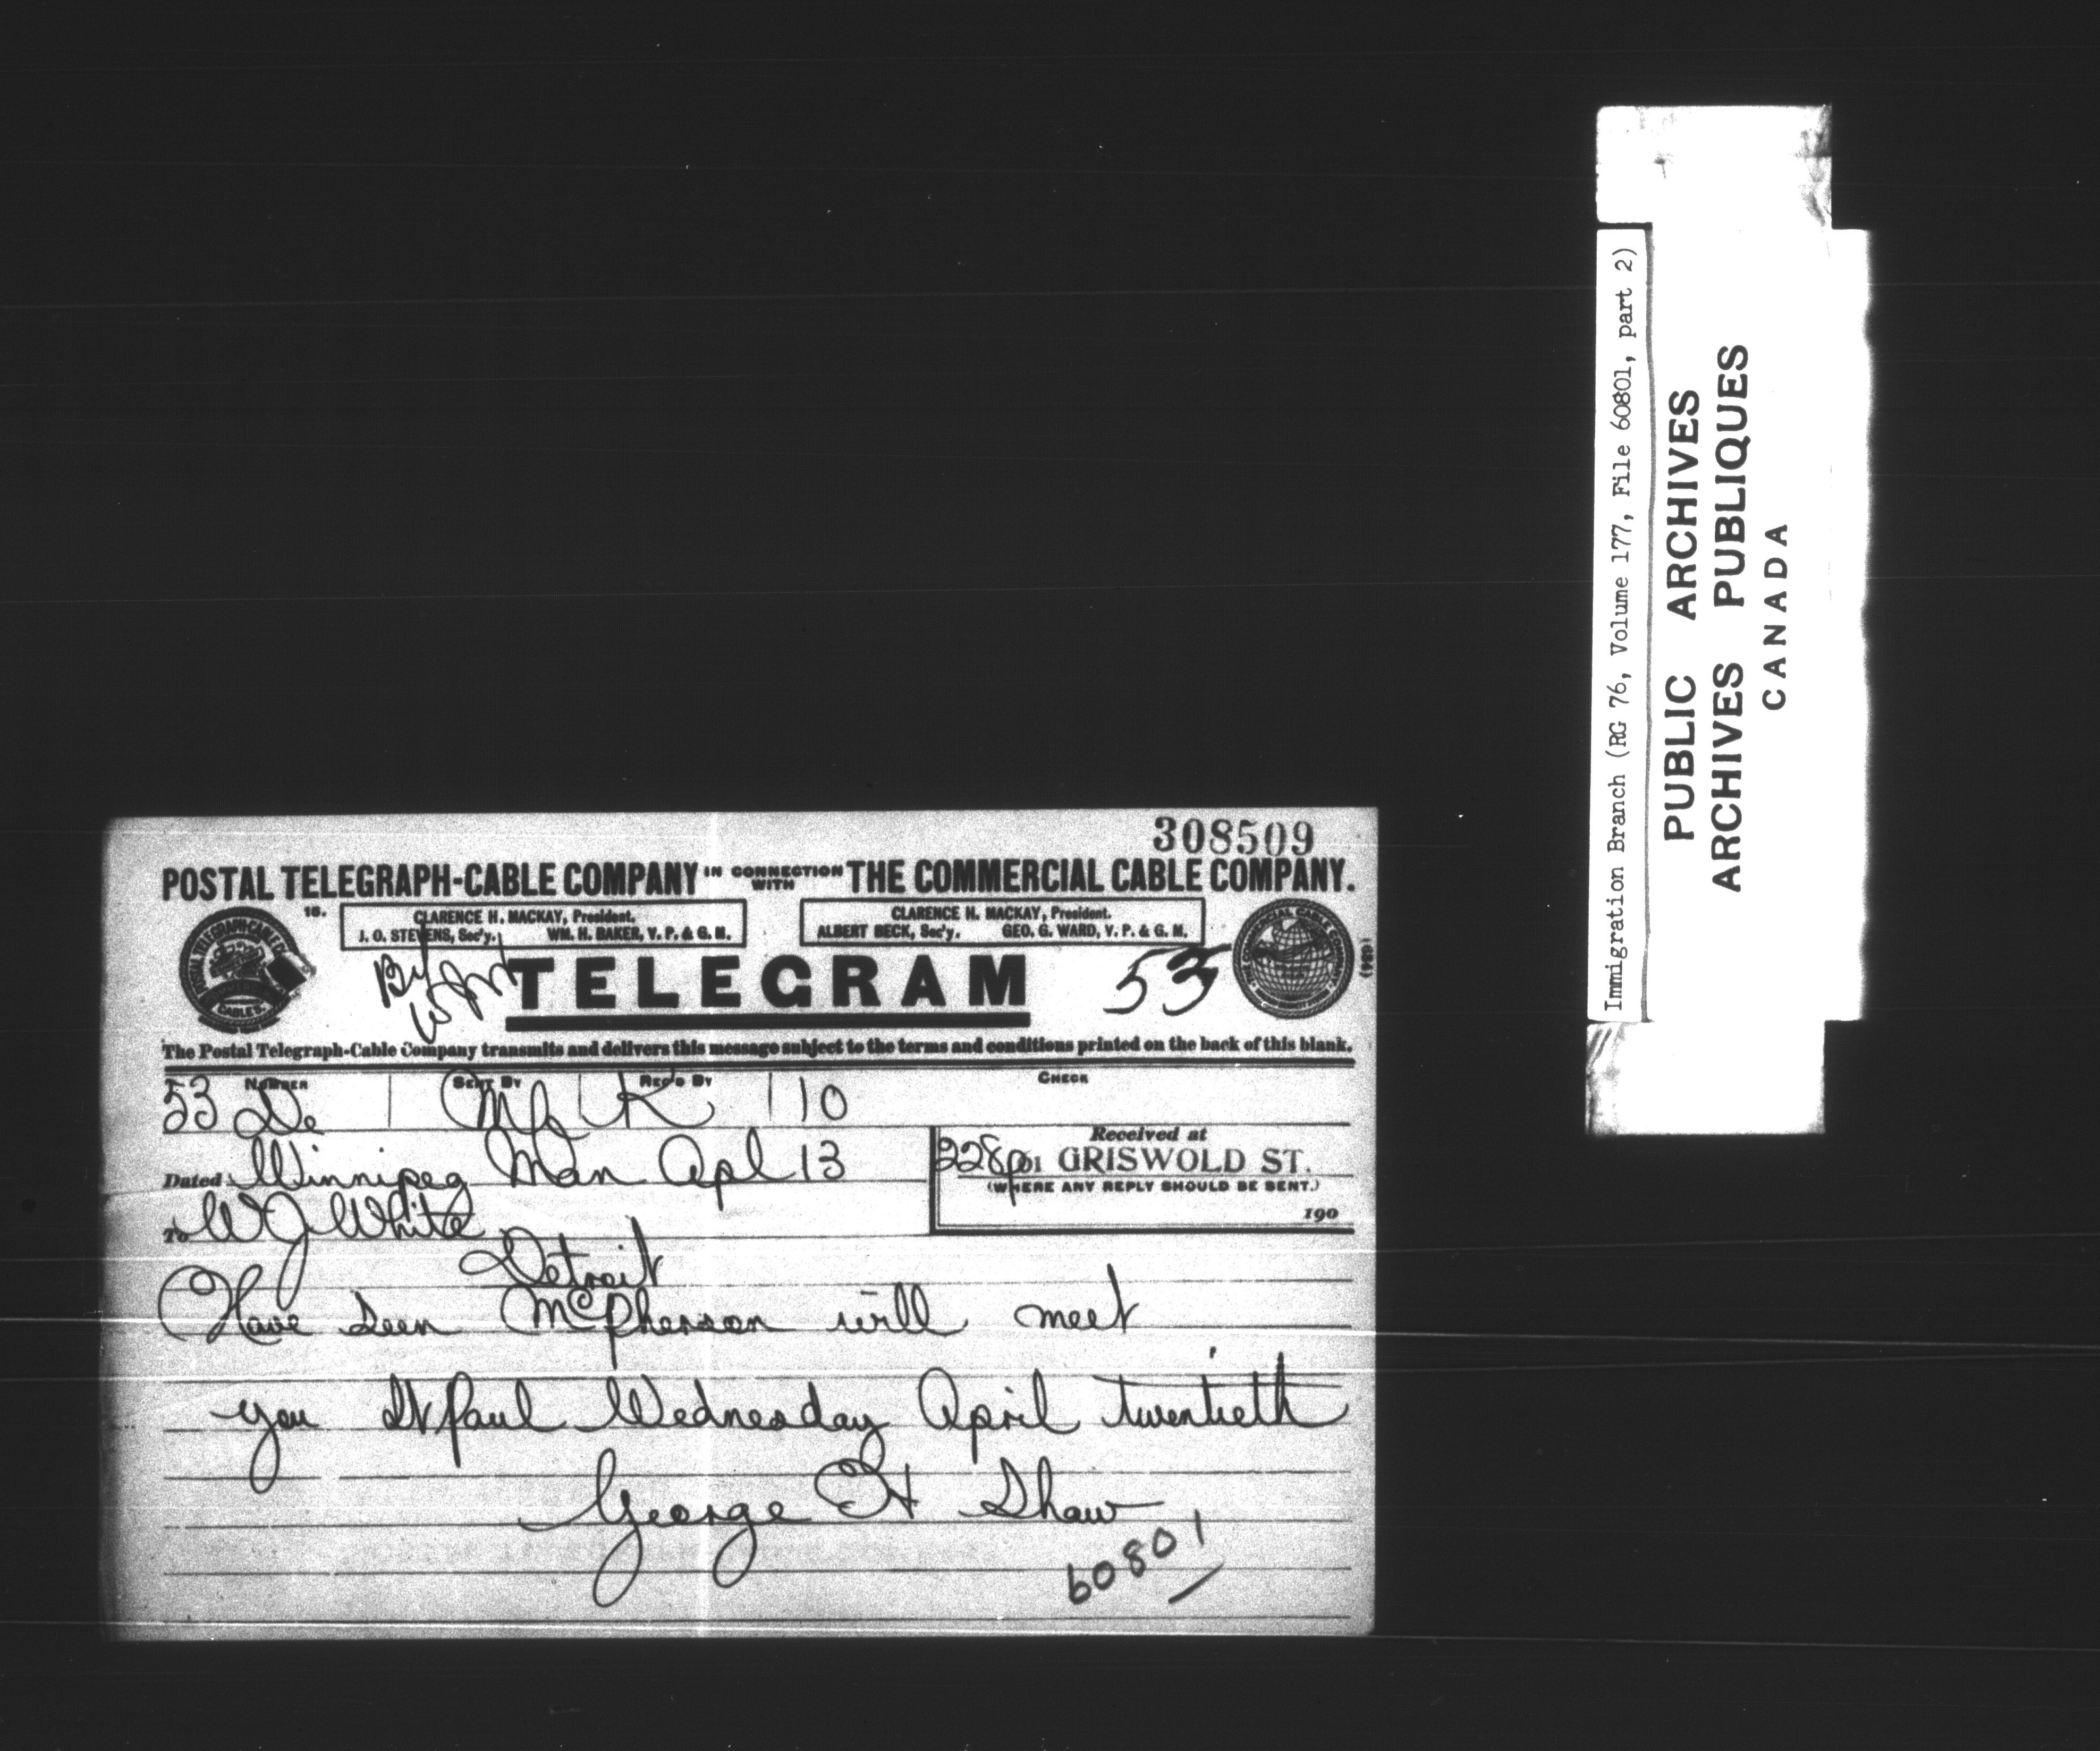 308509
POSTAL TELEGRAPH-CABLE COMPANY IN CONNECTION WITH THE COMMERCIAL CABLE COMPANY.
16.
CLARENCE H. MACKAY, President.
J. O. STEVENS, Sec'y. WM. H. BAKER, V. P. & G. M.
CLARENCE H. MACKAY, President.
ALBERT BECK, Sec'y. GEO. G. WARD, V. P. & G. M.
TELEGRAM 53
The Postal Telegraph-Cable Company transmits and delivers this message subject to the terms and conditions printed on the back of this blank.
NUMBER SENT BY REC'D BY CHECK
53 De K 10
Received at
Dated Winnipeg Man Apl 13
228p 01 GRISWOLD ST.
(WHERE ANY REPLY SHOULD BE SENT.)
190
To W J White
Detroit
Have seen McPherson will meet
you St Paul Wednesday April twentieth
George H Shaw
60801
Immigration Branch (RG 76, Volume 177, File 60801, part 2)
PUBLIC ARCHIVES
ARCHIVES PUBLIQUES
CANADA